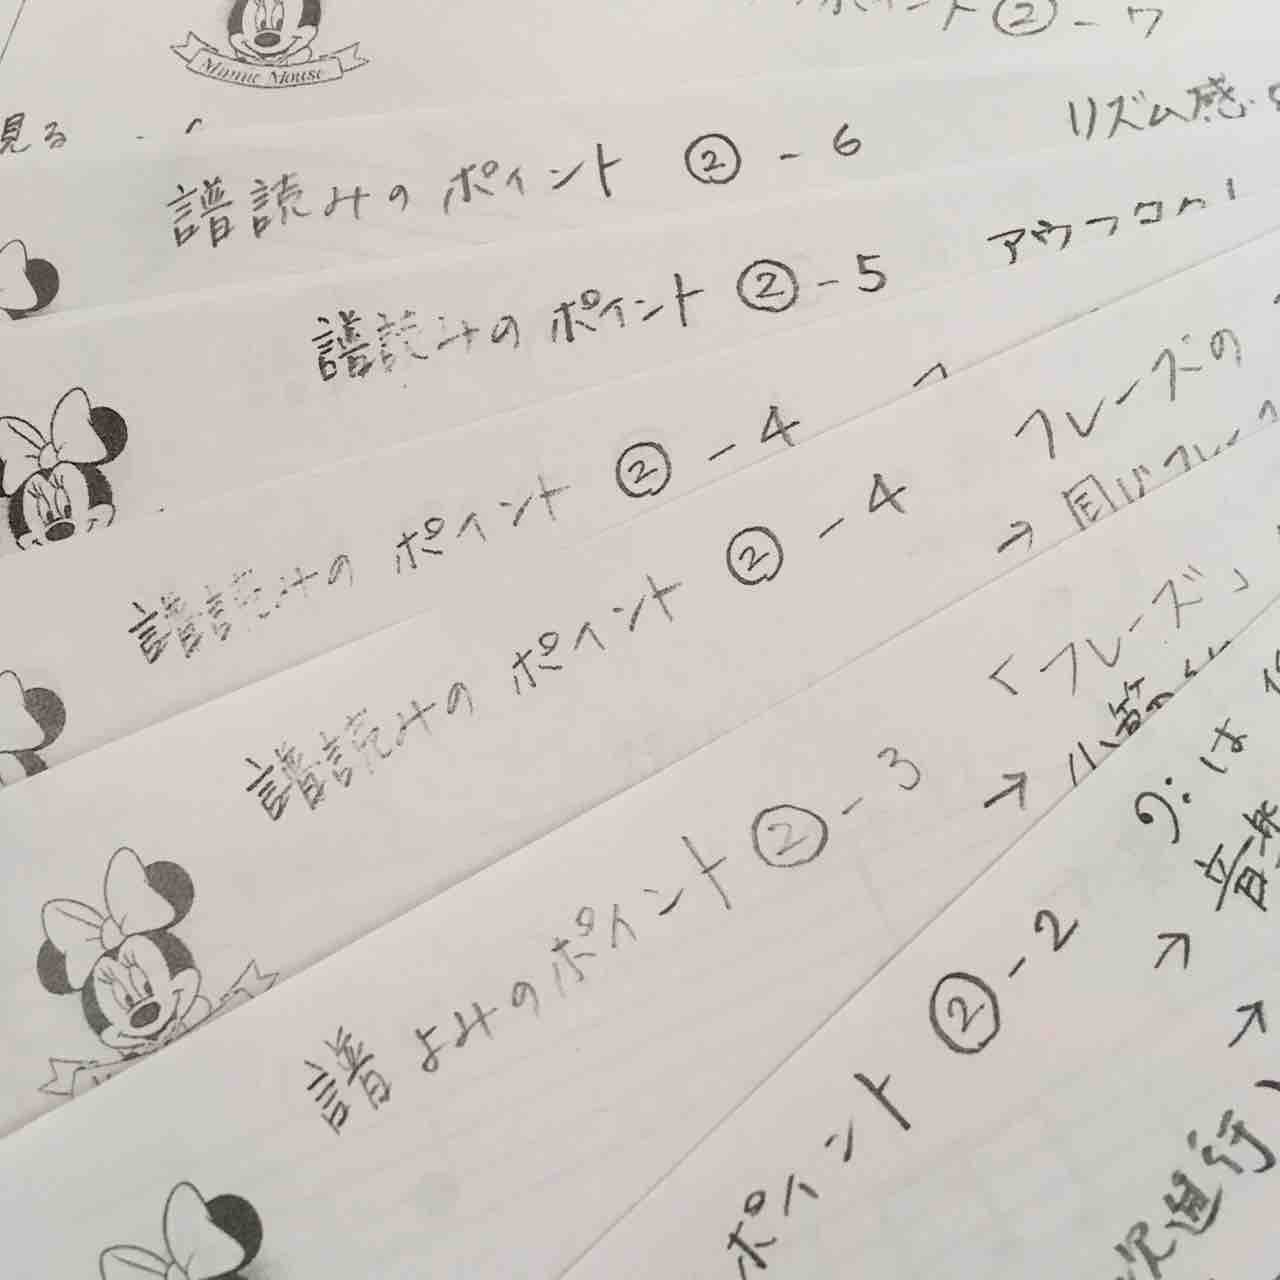 Minnie Mouse
ポイント ② - 7
見る
譜読みの ポイント ② - 6
リズム感
譜読みの ポイント ② - 5
譜読みの ポイント ② - 4
譜読みの ポイント ② - 4
フレーズの
→ 同じフレーズ
譜よみのポイント ② - 3
「フレーズ」
→ 小節
ポイント ② - 2
は
→ 音
→
次進行